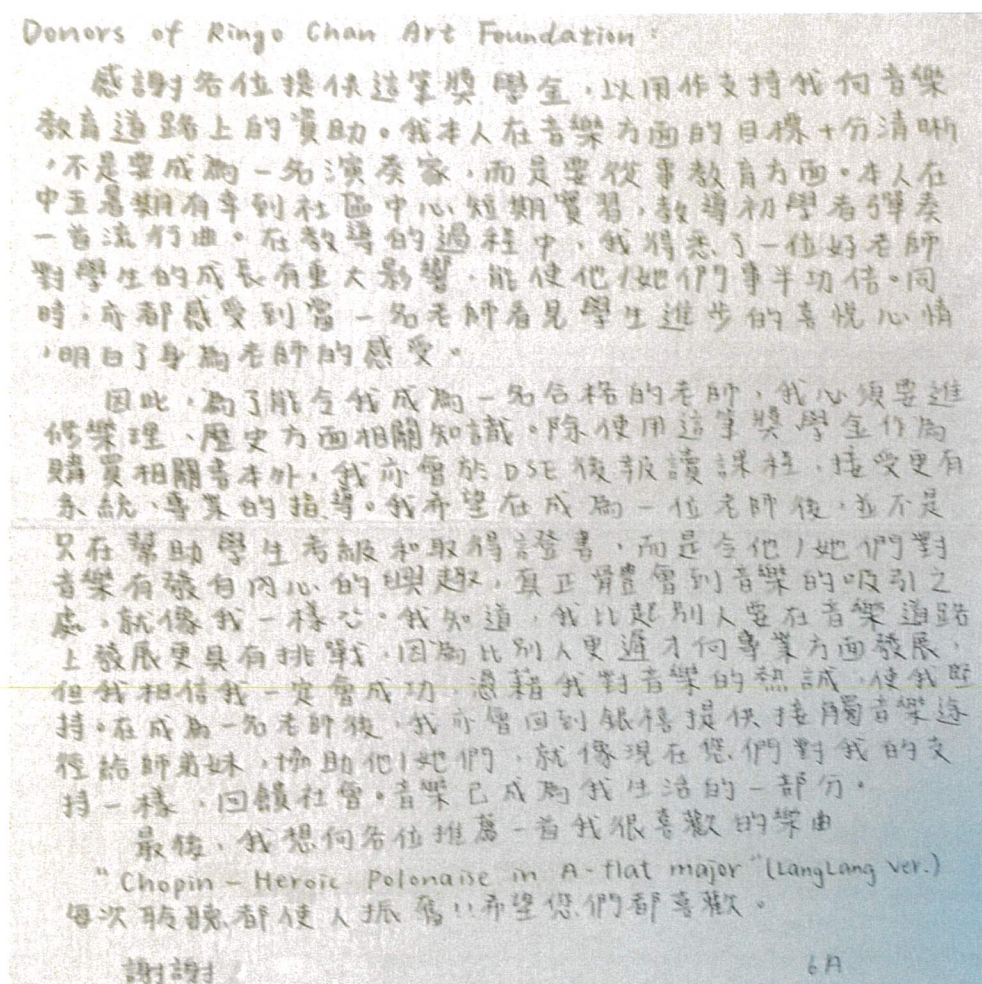 Donors of Ringo Chan Art Foundation：
感謝各位提供這筆獎學金，以用作支持我向音樂
教育道路上的資助。我本人在音樂方面的目標十分清晰
，不是要成為一名演奏家，而是要從事教育方面。本人在
中五暑期有幸到社區中心短期實習，教導初學者彈奏
一首流行曲。在教導的過程中，我得悉了一位好老師
對學生的成長有重大影響，能使他/她們事半功倍。同
時，亦都感受到當一名老師看見學生進步的喜悅心情
，明白了身為老師的感受。
因此，為了能令我成為一名合格的老師，我必須要進
修樂理、歷史方面相關知識。除使用這筆獎學金作為
購買相關書本外，我亦會於DSE後報讀課程，接受更有
系統、專業的指導。我希望在成為一位老師後，並不是
只在幫助學生考級和取得證書，而是令他/她們對
音樂有發自內心的興趣，真正體會到音樂的吸引之
處，就像我一樣。我知道，我比起別人要在音樂道路
上發展更具有挑戰，因為比別人更遲才向專業方面發展，
但我相信我一定會成功，憑藉我對音樂的熱誠，使我堅
持。在成為一名老師後，我亦會回到銀禧提供接觸音樂途
徑給師弟妹，協助他/她們，就像現在您們對我的支
持一樣，回饋社會。音樂已成為我生活的一部分。
最後，我想向各位推薦一首我很喜歡的樂曲
"Chopin - Heroic Polonaise in A-flat major"(LangLang ver.)
每次聆聽都使人振奮!!希望您們都喜歡。
謝謝
6A